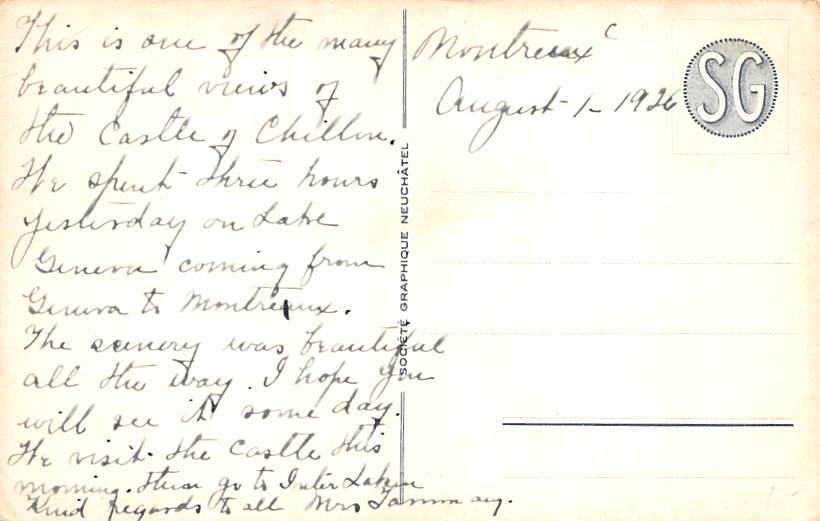 This is one of the many
beautiful views of
the Castle of Chillon.
We spent three hours
yesterday on Lake
Geneva coming from
Geneva to Montreux.
The scenery was beautiful
all the way. I hope you
will see it some day.
We visit the Castle this
morning. then go to Inter Laken
Kind regards to all Mrs
Montreux
August-1-1926
SG
SOCIÉTÉ GRAPHIQUE NEUCHÂTEL